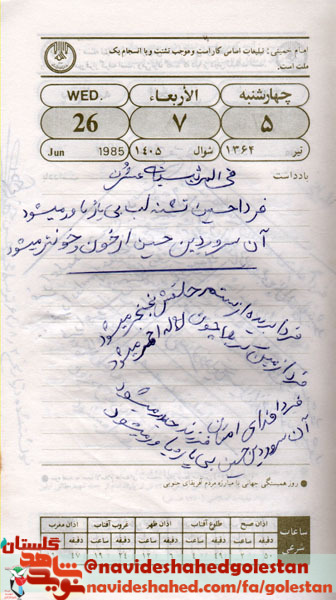 امام خمینی: تبلیغات اساس کار است و موجب تشتت و یا انسجام یک
ملت است.
چهارشنبه
الأربعاء
WED.
۵
۷
26
تیر ۱۳۶۴
شوال ۱۴۰۵
Jun 1985
یادداشت
فردا حسین تشنه لب بی یار و یاور میشود
آن سرور دین حسین از خون و خونتر میشود
فردا بریده از ستم حلقش بخنجر میشود
فردا زمین کربلا چون لاله احمر میشود
فردا فدای امتان فرزند حیدر میشود
آن سرور دین حسین بی یار و یاور میشود
روز همبستگی جهانی با مبارزه مردم آفریقای جنوبی
ساعات شرعی
اذان صبح
طلوع آفتاب
اذان ظهر
غروب آفتاب
اذان مغرب
دقیقه ساعت
دقیقه ساعت
دقیقه ساعت
دقیقه ساعت
دقیقه ساعت
گلستان
نوید شاهد
@navideshahedgolestan
navideshahed.com/fa/golestan